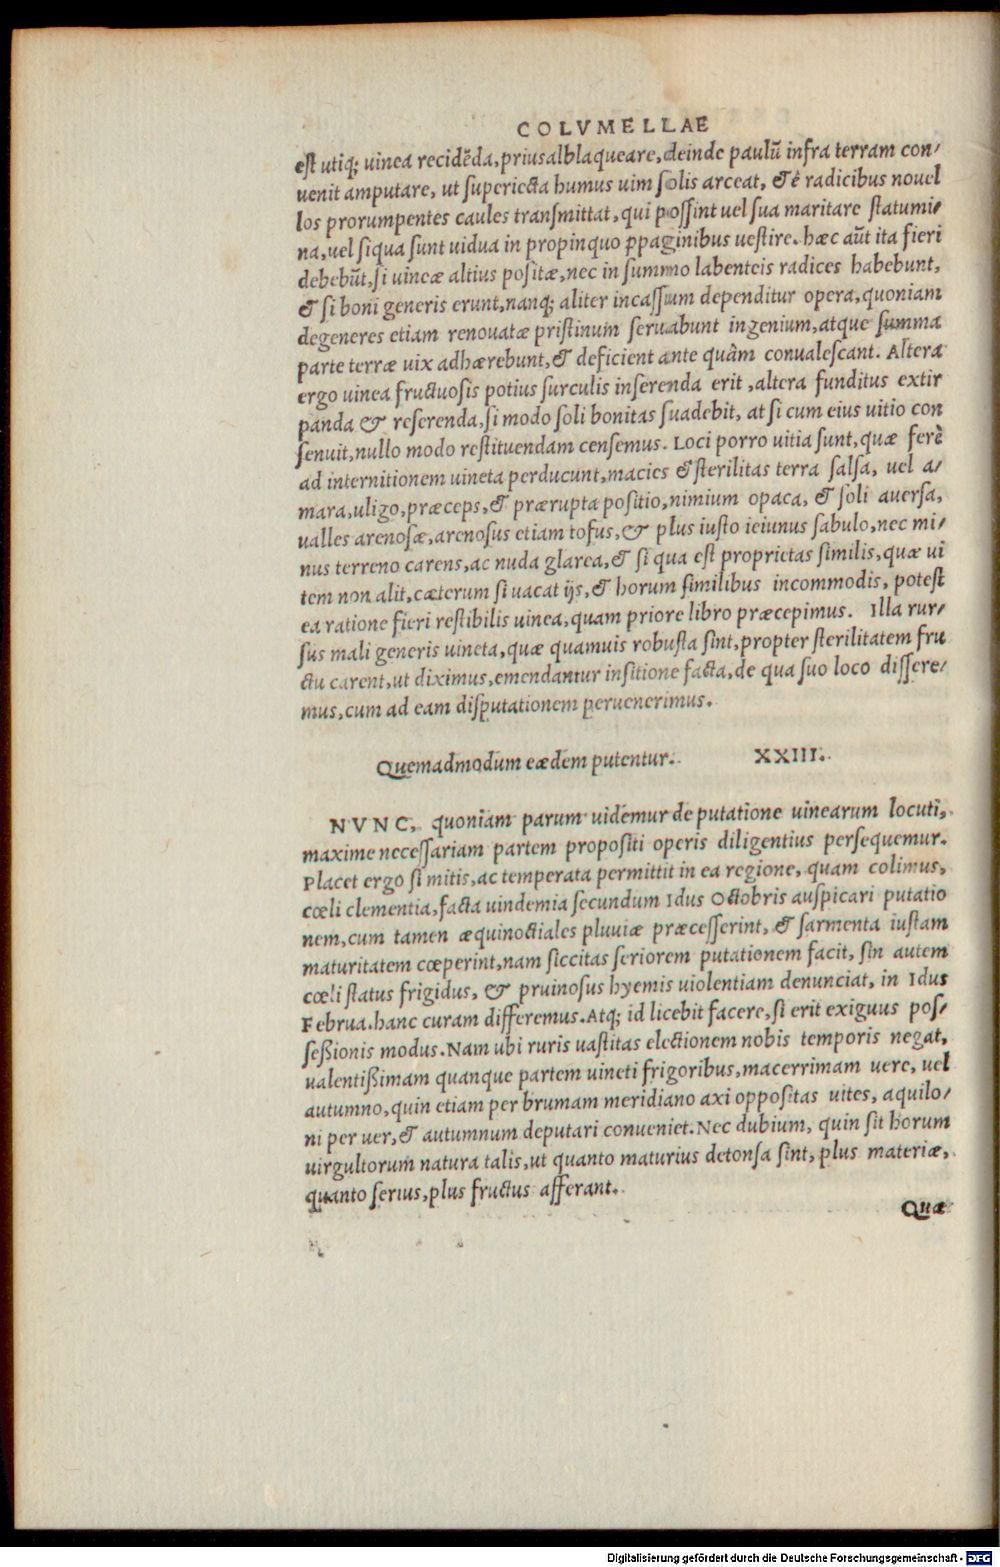 COLVMELLAE
est utiq; uinea recidēda, prius alblaqueare, deinde paulū infra terram con/
uenit amputare, ut superiecta humus uim solis arceat, & è radicibus nouel
los prorumpentes caules transmittat, qui possint uel sua maritare statumi/
na, uel siqua sunt uidua in propinquo ꝓpaginibus uestire. hæc aūt ita fieri
debebūt, si uineæ altius positæ, nec in summo labenteis radices habebunt,
& si boni generis erunt, nanq; aliter incassum dependitur opera, quoniam
degeneres etiam renouatæ pristinum seruabunt ingenium, atque summa
parte terræ uix adhærebunt, & deficient ante quàm conualescant. Altera
ergo uinea fructuosis potius surculis inserenda erit, altera funditus extir
panda & reserenda, si modo soli bonitas suadebit, at si cum eius uitio con
senuit, nullo modo restituendam censemus. Loci porro uitia sunt, quæ ferè
ad internitionem uineta perducunt, macies & sterilitas terra salsa, uel a/
mara, uligo, præceps, & prærupta positio, nimium opaca, & soli auersa,
ualles arenosæ, arenosus etiam tofus, & plus iusto ieiunus sabulo, nec mi/
nus terreno carens, ac nuda glarea, & si qua est proprietas similis, quæ ui
tem non alit, cæterum si uacat ijs, & horum similibus incommodis, potest
ea ratione fieri restibilis uinea, quam priore libro præcepimus. Illa rur/
sus mali generis uineta, quæ quamuis robusta sint, propter sterilitatem fru
ctu carent, ut diximus, emendantur insitione facta, de qua suo loco dissere/
mus, cum ad eam disputationem peruenerimus.
Quemadmodum eædem putentur. XXIII.
NVNC, quoniam parum uidemur de putatione uinearum locuti,
maxime necessariam partem propositi operis diligentius persequemur.
Placet ergo si mitis, ac temperata permittit in ea regione, quam colimus,
cœli clementia, facta uindemia secundum Idus Octobris auspicari putatio
nem, cum tamen æquinoctiales pluuiæ præcesserint, & sarmenta iustam
maturitatem cœperint, nam siccitas seriorem putationem facit, sin autem
cœli status frigidus, & pruinosus hyemis uiolentiam denunciat, in Idus
Februa. hanc curam differemus. Atq; id licebit facere, si erit exiguus pos/
seßionis modus. Nam ubi ruris uastitas electionem nobis temporis negat,
ualentißimam quanque partem uineti frigoribus, macerrimam uere, uel
autumno, quin etiam per brumam meridiano axi oppositas uites, aquilo/
ni per uer, & autumnum deputari conueniet. Nec dubium, quin sit horum
uirgultorum natura talis, ut quanto maturius detonsa sint, plus materiæ,
quanto serius, plus fructus afferant.
Quæ
Digitalisierung gefördert durch die Deutsche Forschungsgemeinschaft - DFG